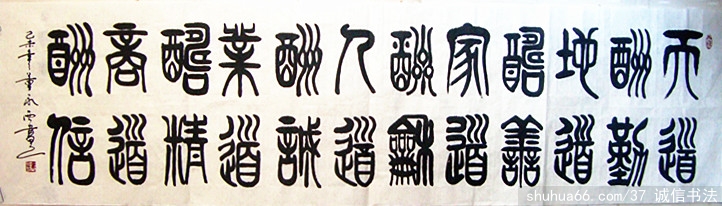 天道
酬勤
地道
酬善
家道
酬龢
人道
酬誠
業道
酬精
商道
酬信
shuhua66.com/37 诚信书法